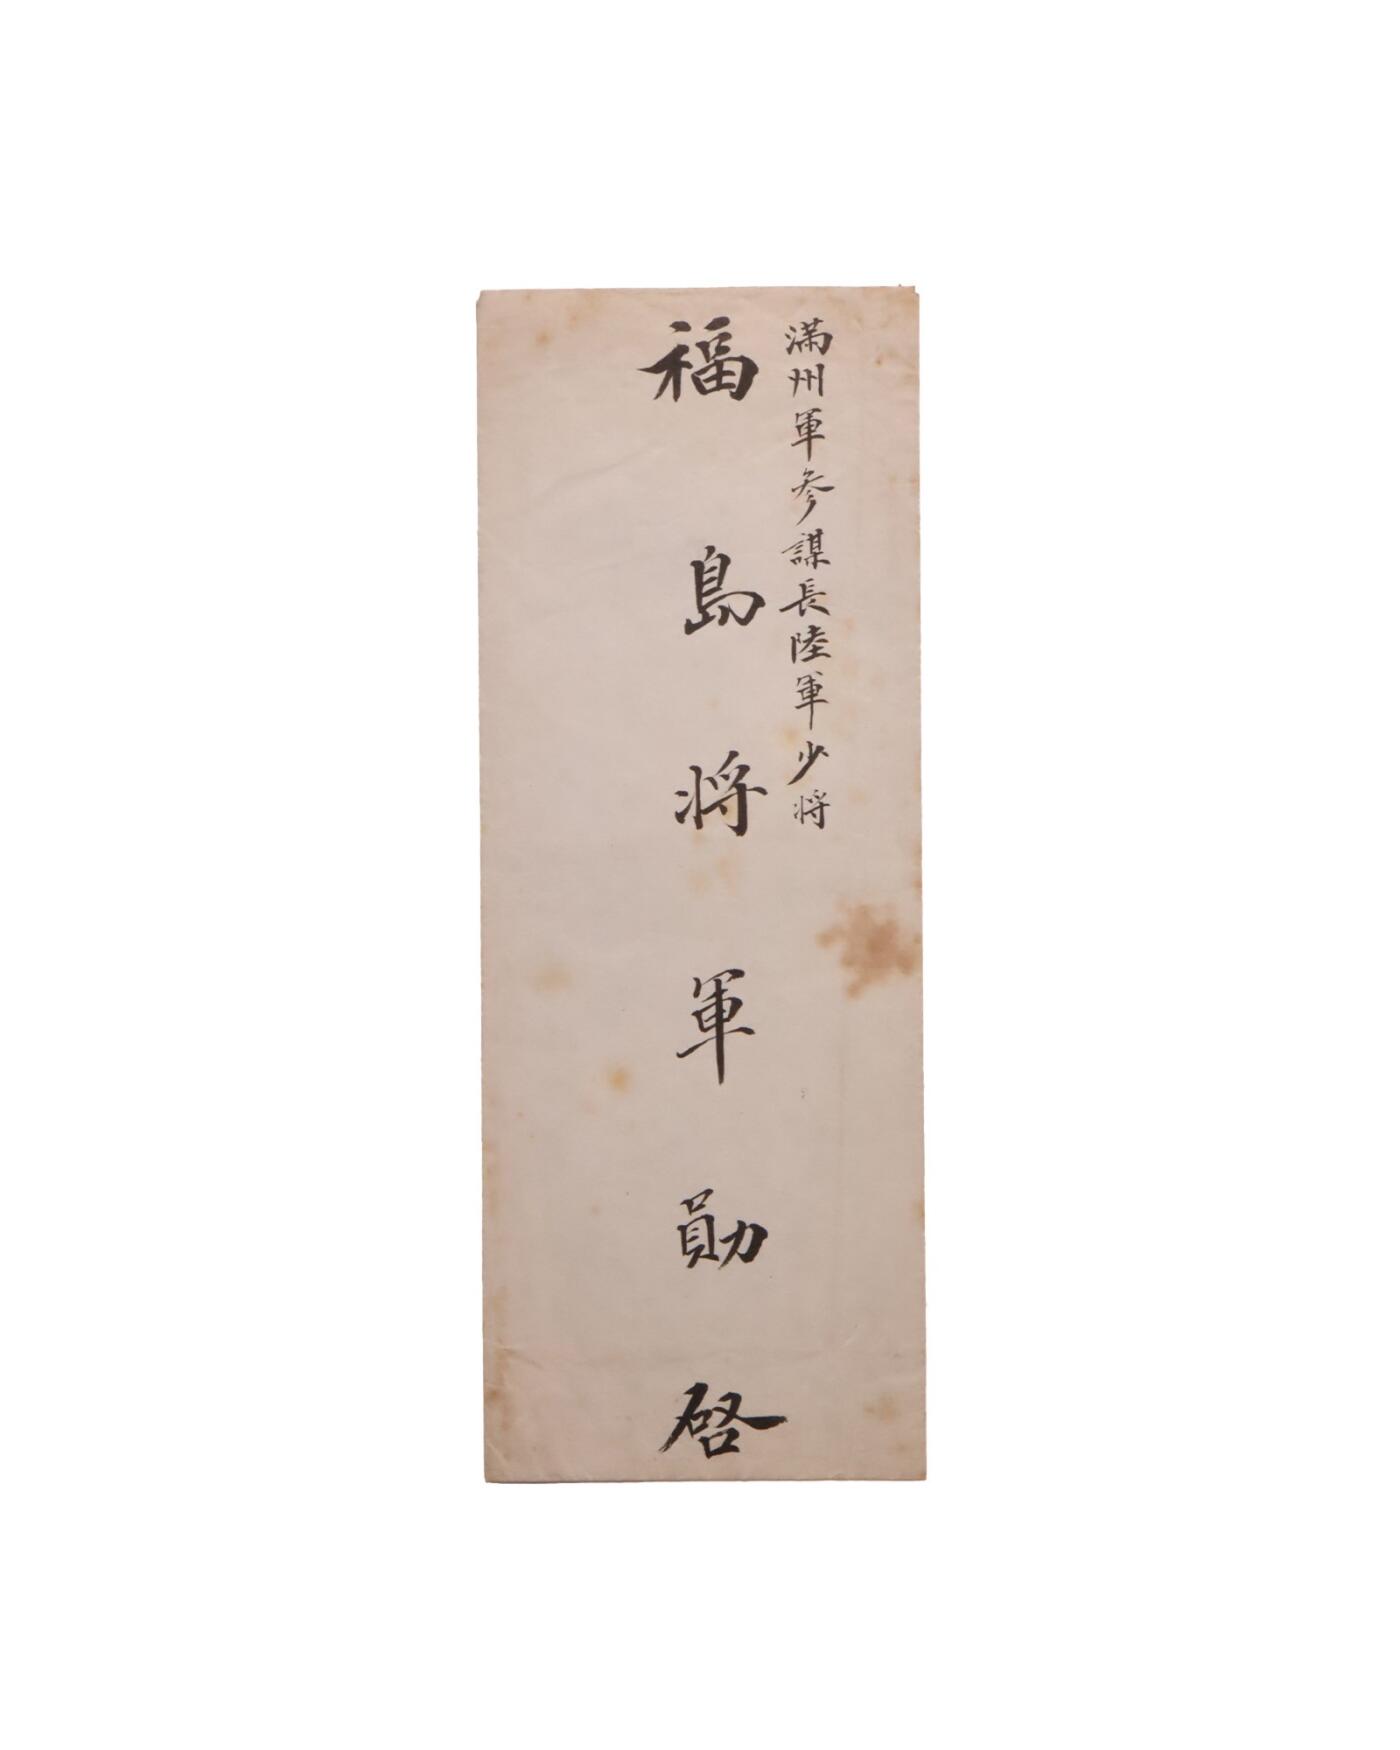 満州軍参謀長陸軍少将
福島将軍勛啓